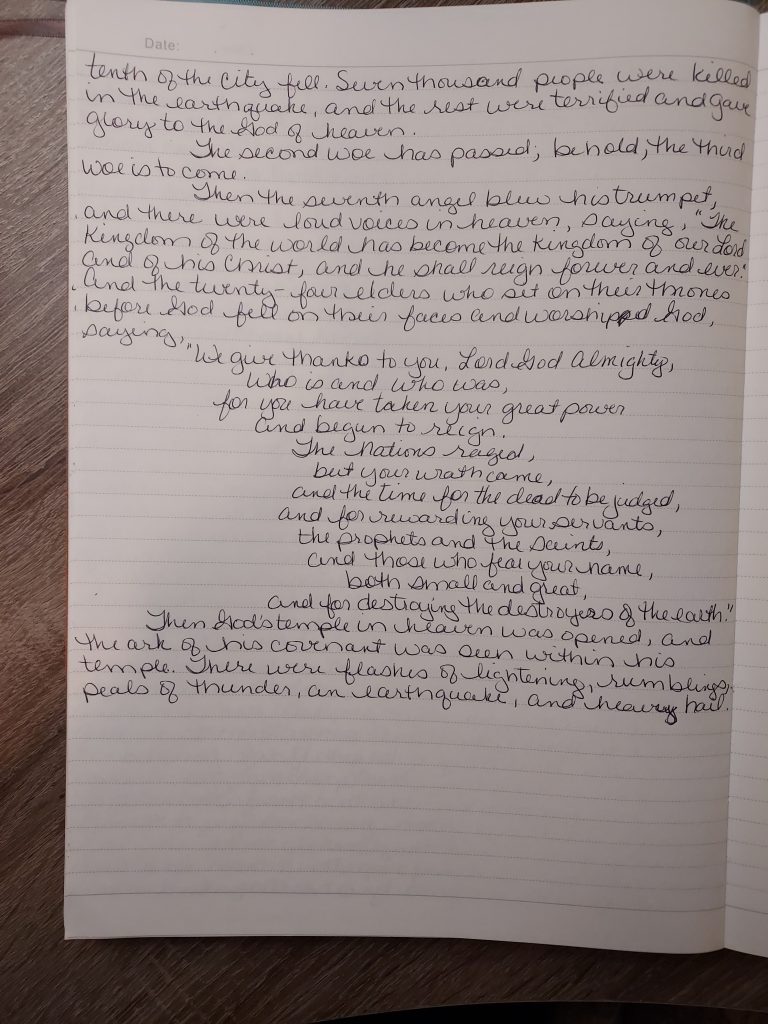 Date:
tenth of the city fell. Seven thousand people were killed
in the earthquake, and the rest were terrified and gave
glory to the God of heaven.
The second woe has passed; behold, the third
woe is to come.
Then the seventh angel blew his trumpet,
and there were loud voices in heaven, saying, "The
Kingdom of the world has become the Kingdom of our Lord
and of his Christ, and he shall reign forever and ever."
And the twenty-four elders who sit on their thrones
before God fell on their faces and worshipped God,
saying,
"We give thanks to you, Lord God Almighty,
Who is and who was,
for you have taken your great power
and begun to reign.
The Nations raged,
but your wrath came,
and the time for the dead to be judged,
and for rewarding your servants,
the prophets and the saints,
and those who fear your name,
both small and great,
and for destroying the destroyers of the earth."
Then God's temple in heaven was opened, and
the ark of his covenant was seen within his
temple. There were flashes of lightening, rumblings,
peals of thunder, an earthquake, and heavy hail.